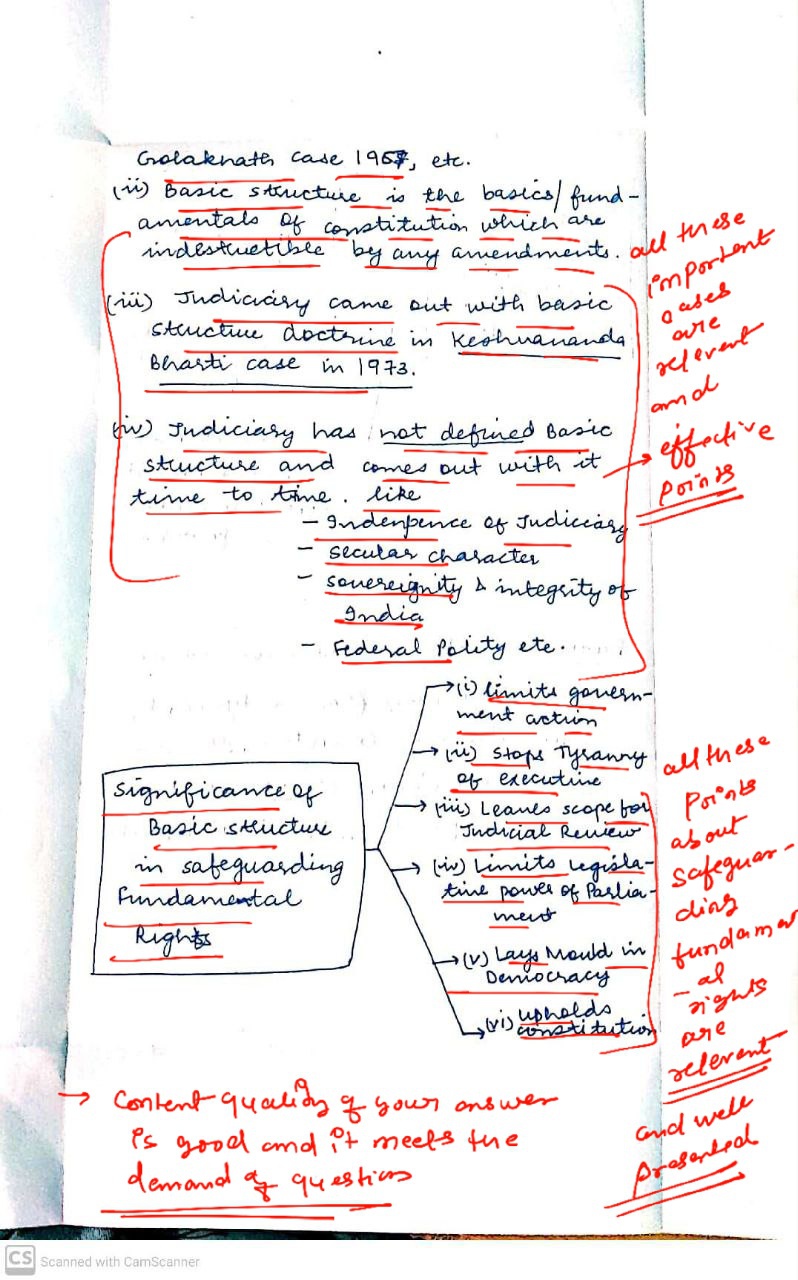 Golaknath case 1967, etc.
(ii) Basic structure is the basics/ fund-
amentals of constitution which are
indestructible by any amendments.
(iii) Judiciary came out with basic
structure doctrine in Keshvananda
Bharti case in 1973.
(iv) Judiciary has not defined Basic
structure and comes out with it
time to time. like
- Indenpence of Judiciary
- secular character
- sovereignity & integrity of
India
- Federal Polity etc.
all these
important
cases
are
relevent
and
effective
points
Significance of
Basic structure
in safeguarding
Fundamental
Rights
(i) limits govern-
ment action
(ii) Stops Tyranny
of executive
(iii) Leaves scope for
Judicial Review
(iv) Limits legisla-
tive power of Parlia-
ment
(v) Lays Mould in
Democracy
(vi) upholds
constitution
all these
points
about
safeguar-
ding
fundament
-al
rights
are
relevent
and well
presented
→ Content quality of your answer
is good and it meets the
demand of question
CS Scanned with CamScanner